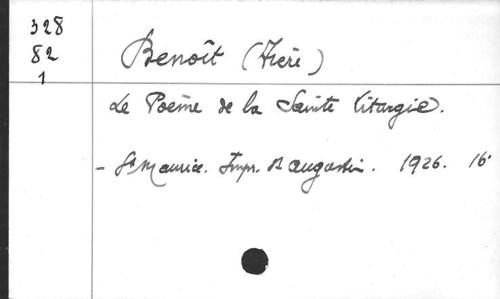 328
82
1
Benoît (Frère)
Le Poème de la Sainte Liturgie.
- St Maurice. Impr. St Augustin. 1926. 16°